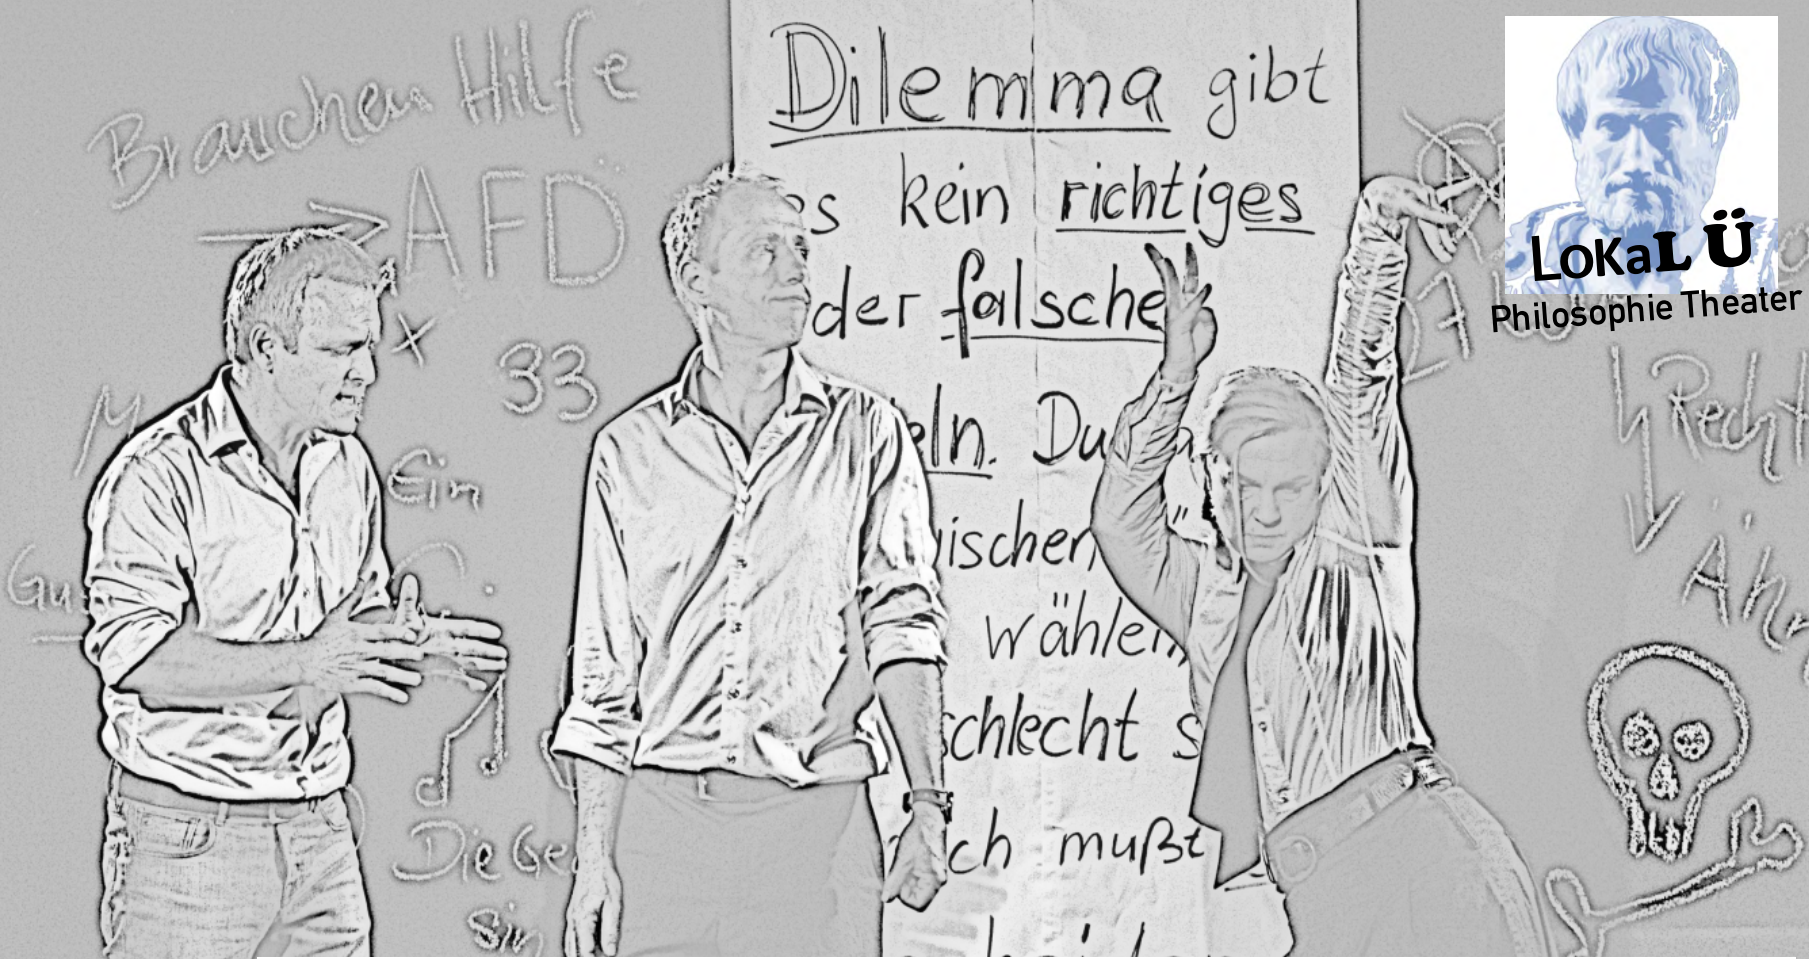 Brauchen Hilfe
AFD
33
Ein
Die Ge
Sin
Gu
M
Dilemma gibt
es kein richtiges
der falsche
eln. Du
ischen
wählen
schlecht s
ch mußt
Recht
Ähn
LOKaL Ü
Philosophie Theater